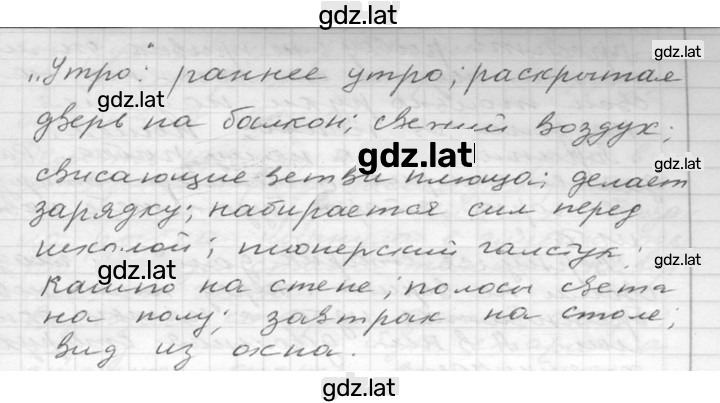 gdz.lat
gdz.lat
„Утро“: раннее утро; раскрытая
gdz.lat
дверь на балкон; свежий воздух;
gdz.lat
gdz.lat
свисающие ветви плюща; делает
зарядку; набирается сил перед
школой; пионерский галстук;
gdz.lat
gdz.lat
кашпо на стене; полосы света
на полу; завтрак на столе;
вид из окна.
gdz.lat